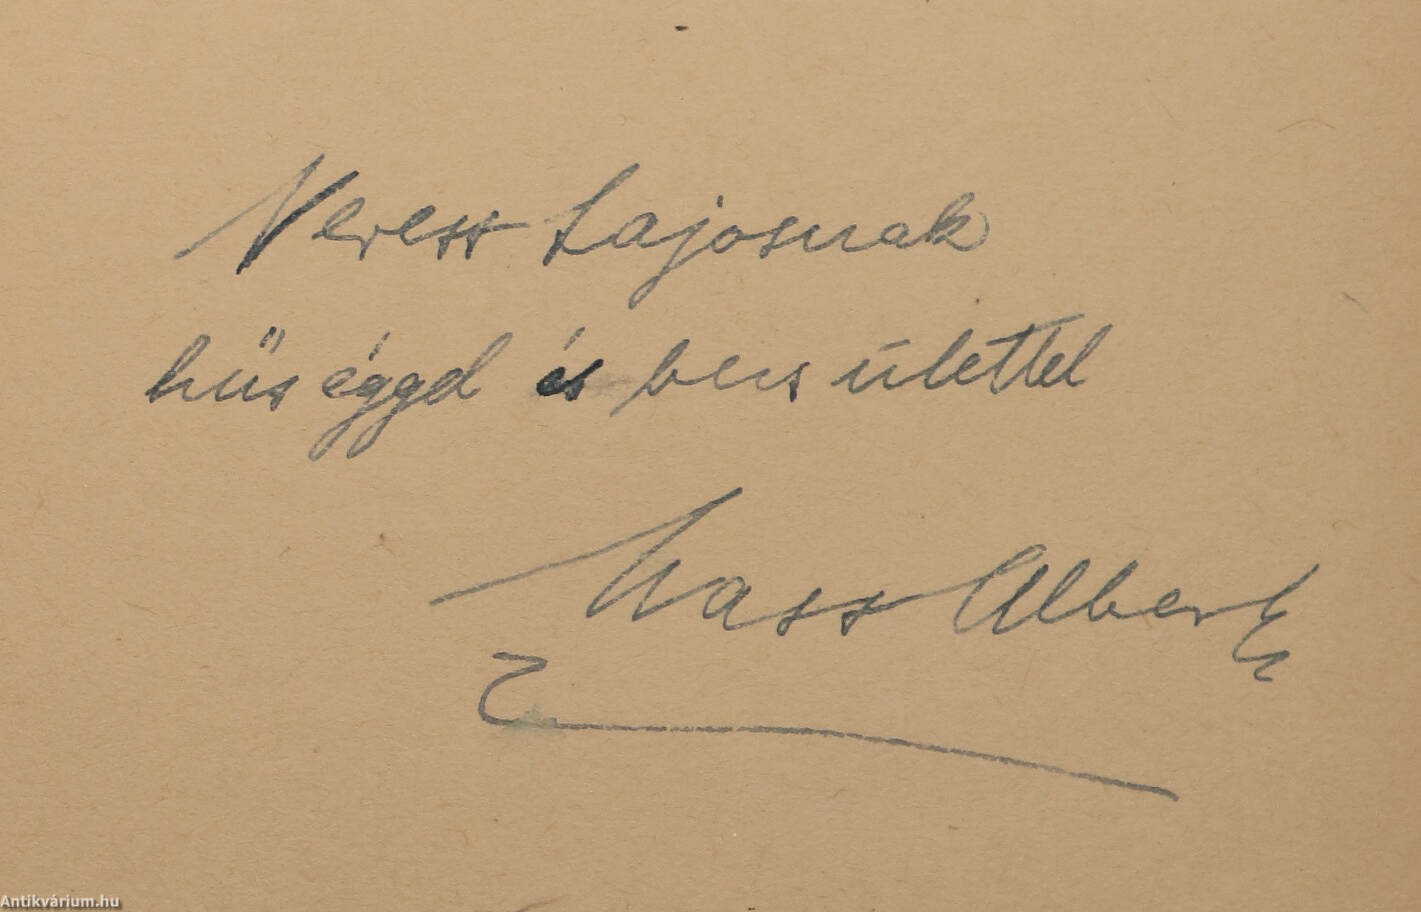 Veress Lajosnak
hűséggel és becsülettel
Wass Albert
Antikvárium.hu